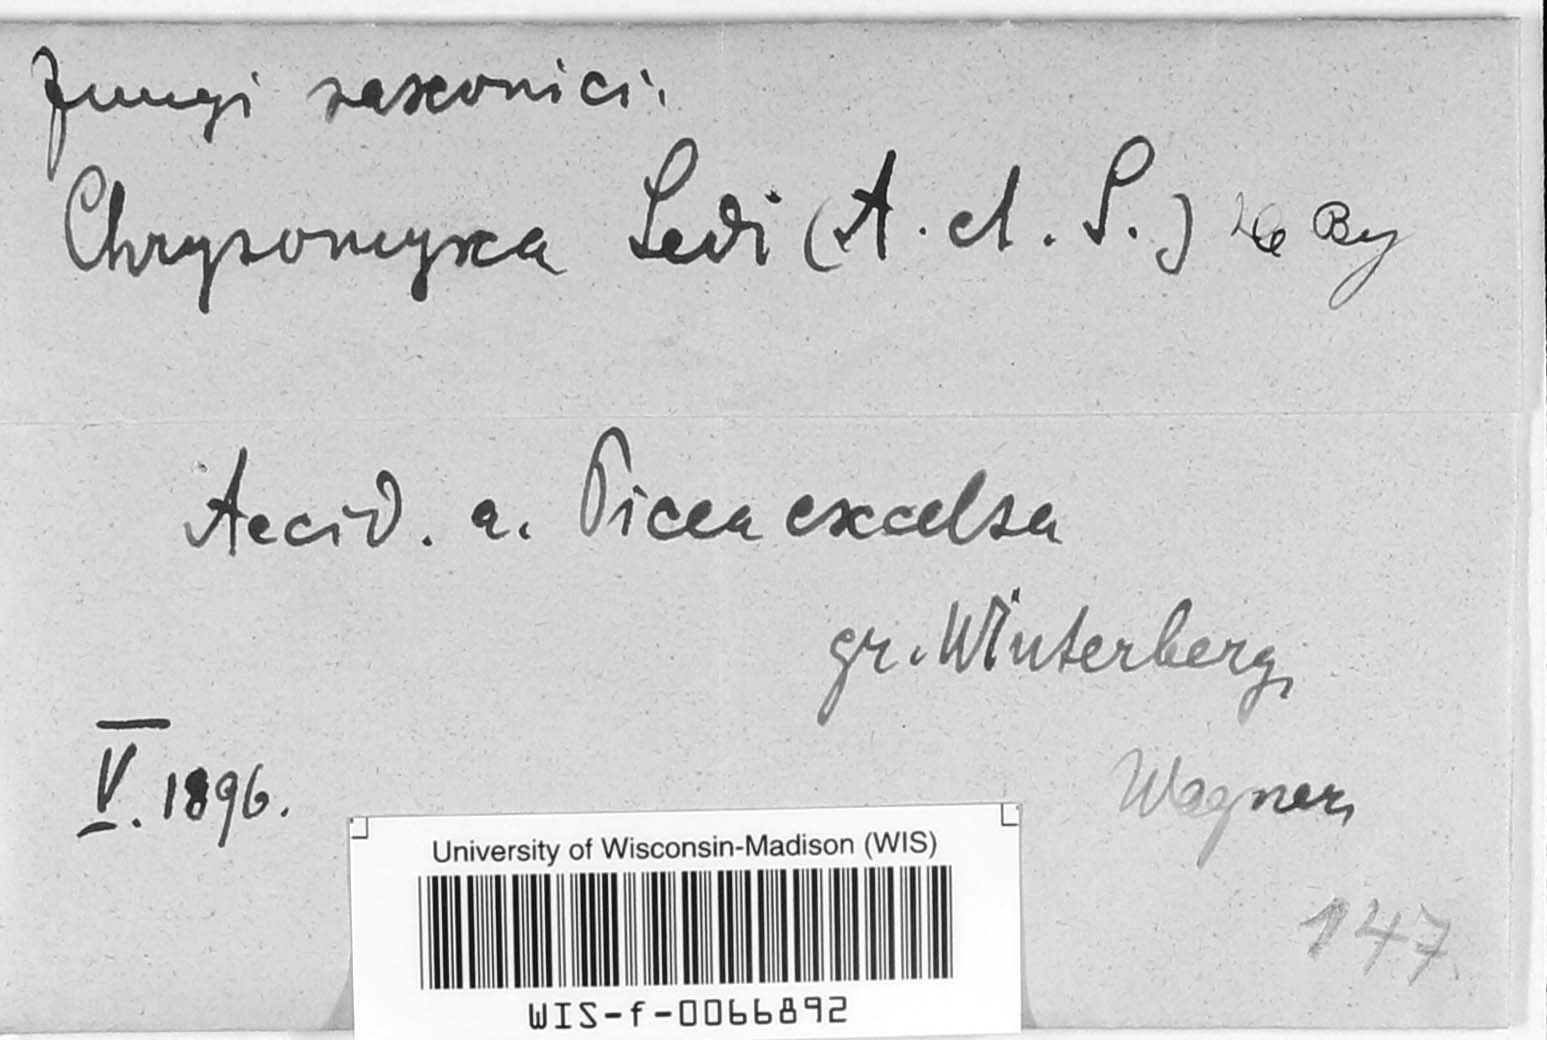 Fungi saxonici.
Chrysomyxa Ledi (A. et. S.) de By
Aecid. a. Picea excelsa
gr. Winterberg,
V. 1896.
Wagner,
147
University of Wisconsin-Madison (WIS)
WIS-f-0066892